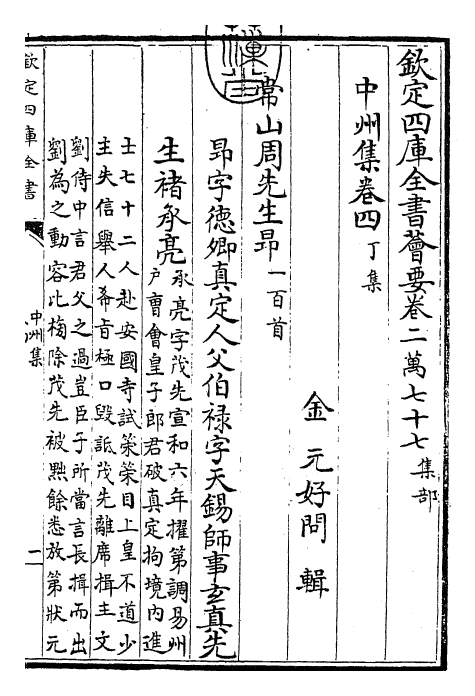 欽定四庫全書薈要卷二萬七十七 集部
中州集卷四 丁集
金 元好問 輯
常山周先生昂 一百首
昂字德卿真定人父伯祿字天錫師事玄真先
生褚承亮 承亮字茂先宣和六年擢第調易州
户曹會皇子郎君破真定拘境内進
士七十二人赴安國寺試策策目上皇不道少
主失信舉人希旨極口毀詆茂先離席揖主文
劉侍中言君父之過豈臣子所當言長揖而出
劉為之動容比梅除茂先被黜餘悉放第狀元
欽定四庫全書
中州集